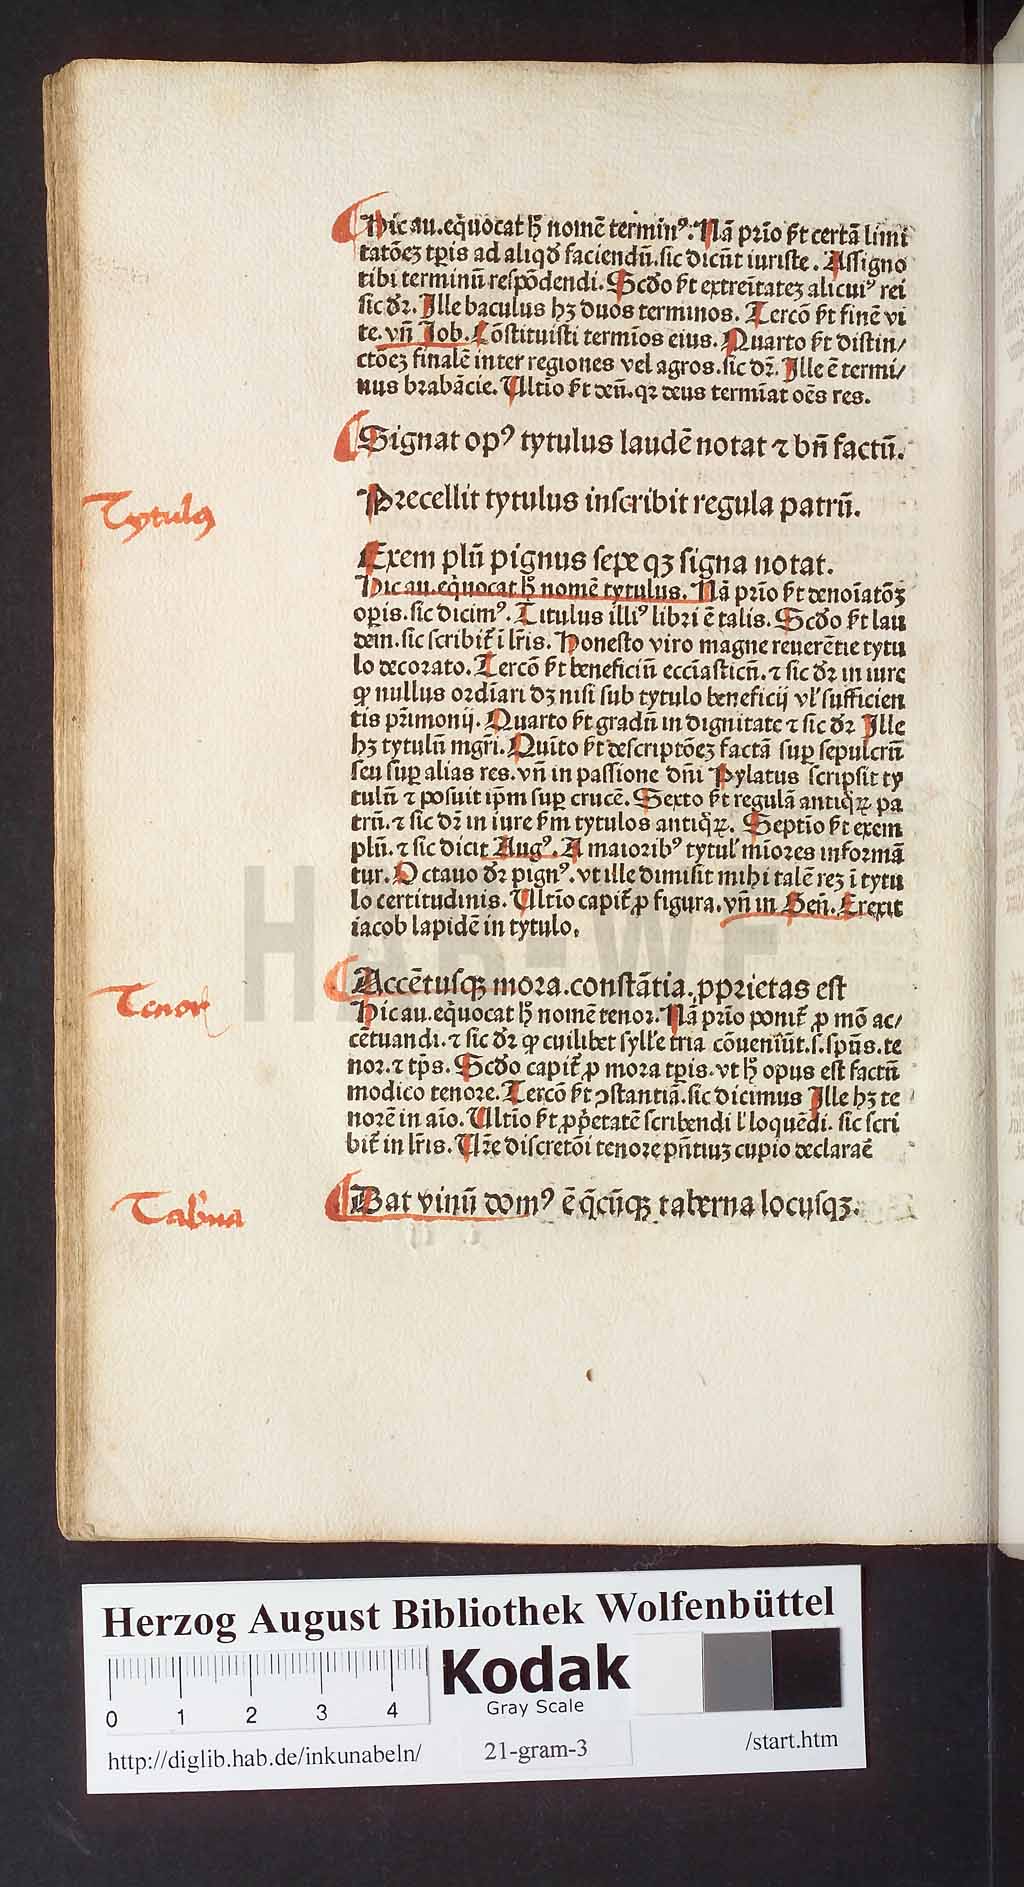 Hic au. eq̄uocat hͦ nomē termin⁹. Nā prīo ſt certā limi
tatōeꝫ tꝑis ad aliqd̕ faciendū. ſic dicūt iuriſte. Aſſigno
tibi terminū reſpōdendi. Scd̕o ſt extreītateꝫ alicui⁹ rei
ſic dr̄. Ille baculus hꝫ duos terminos. Tercō ſt finē vi
te. vn̄ Job. Cōſtituiſti termīos eius. Quarto ſt diſtin/
ctōeꝫ finalē inter regiones vel agros. ſic dr̄. Ille ē termi/
nus brabācie. Ultīo ſt deū. qꝛ deus termīat oēs res.
Signat op⁹ tytulus laudē notat ⁊ bn̄ factū.
Tytul⁹
Precellit tytulus inſcribit regula patrū.
Exem plū pignus ſepe qꝫ ſigna notat.
Hic au. eq̄uocat hͦ nomē tytulus. Nā prīo ſt denoīatōꝫ
oꝑis. ſic dicim⁹. Titulus illi⁹ libri ē talis. Scd̕o ſt lau
dem. ſic ſcribit̄ ī lr̄is. Honeſto viro magne reuerētie tytu
lo decorato. Tercō ſt beneficiū eccīaſticū. ⁊ ſic dr̄ in iure
ꝙ nullus ordīari dꝫ niſi ſub tytulo beneficij vl̕ ſufficien
tis pr̄imonij. Quarto ſt gradū in dignitate ⁊ ſic dr̄ Ille
hꝫ tytulū mgr̄i. Quīto ſt deſcriptōeꝫ factā ſuꝑ ſepulcrū
ſeu ſuꝑ alias res. vn̄ in paſſione dn̄i Pylatus ſcripſit ty
tulū ⁊ poſuit ip̄m ſuꝑ crucē. Sexto ſt regulā antiq̄ꝝ pa
trū. ⁊ ſic dr̄ in iure ẜm tytulos antiq̄ꝝ. Septīo ſt exem
plū. ⁊ ſic dicit Aug⁹. A maiorib⁹ tytul̕ mīores informā
tur. Octauo dr̄ pign⁹. vt ille dimiſit mihi talē reꝫ ī tytu
lo certitudinis. Ultīo capit̄ ꝓ figura. vn̄ in Gen̄. Erexit
iacob lapidē in tytulo.
Accētuſqꝫ mora. conſtātia. ꝓprietas eſt
Tenor
Hic au. eq̄uocat hͦ nomē tenor. Nā prīo ponit̄ ꝓ mō ac/
cētuandi. ⁊ ſic dr̄ ꝙ cuilibet ſyll̕e tria cōueniūt. ſ. ſpūs. te
nor. ⁊ tp̄s. Scd̕o capit̄ ꝓ mora tꝑis. vt hͦ opus eſt factū
modico tenore. Tercō ſt ꝯſtantiā. ſic dicimus Ille hꝫ te
norē in aīo. Ultīo ſt ꝓp̄etatē ſcribendi l̕ loquēdi. ſic ſcri
bit̄ in lr̄is. Vr̄e diſcretōi tenore pn̄tiuꝫ cupio declaraē
Tab̕na
Dat vinū dom⁹ ē q̄cūqꝫ taberna locuſqꝫ.
HAB-WF
Herzog August Bibliothek Wolfenbüttel
0 1 2 3 4
Kodak
Gray Scale
http://diglib.hab.de/inkunabeln/
21-gram-3
/start.htm